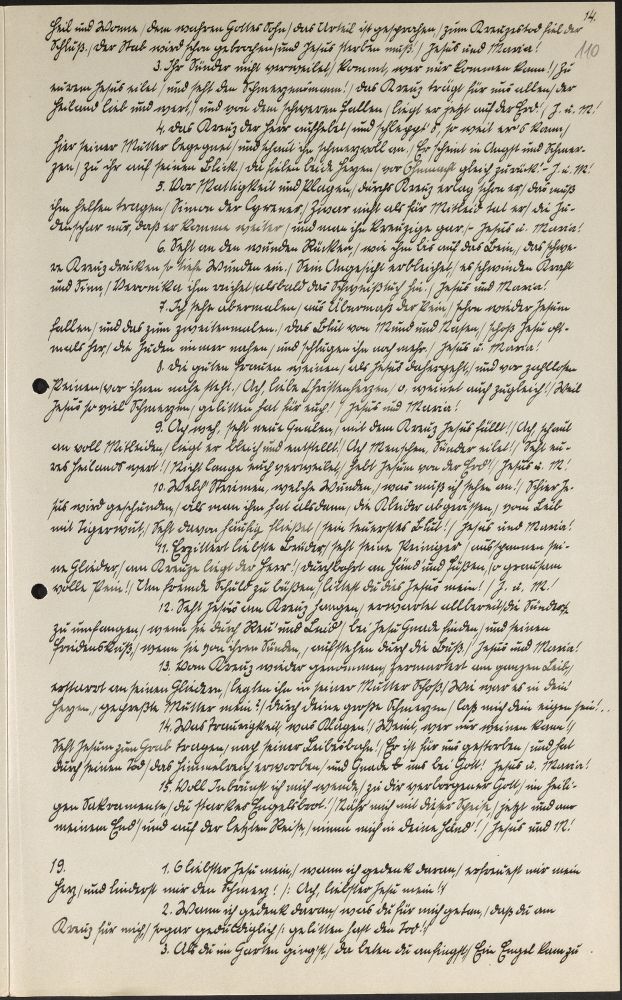 14.
110
Heil und Wonne / dem wahren Gottes Sohn / das Urteil ist gesprochen / zum Kreuzestod fiel der
Schluß. / Der Stab wird schon gebrochen / und Jesus sterben muß! / Jesus und Maria!
3. Ihr Sünder nicht verweilet / kommt, wer nur kommen kann! / Zu
eurem Jesus eilet / und seht den Schmerzensmann! / das Kreuz trägt für uns allen / der
Heiland lieb und wert / und von dem schweren Fallen / liegt er jetzt auf der Erd! / J. u. M!
4. das Kreuz der Herr aufhebet / und schleppt's, so weit er's kann /
hier seiner Mutter begegnet / und schaut ihn schmerzvoll an. / Ihr scheint in Angst und Schmer-
zen / zu ihr auch seinen Blick / da fielen beide Herzen / vor Ohnmacht gleich zurück! - J. u. M!
5. Vor Mattigkeit und Plagen / durchs Kreuz erlag schon er / das muß
ihm helfen tragen / Simon der Cyrener / Zwar nicht als für Mitleid tat er / die Ju-
denschar nur, daß er komme weiter / und man ihn kreuzige gar. / - Jesus u. Maria!
6. Seht an den wunden Rücken / wie ihm bis auf das Bein / das schwe-
re Kreuz drücken so tiefe Wunden ein. / Sein Angesicht erbleichet / es schwinden Kraft
und Sinn / Veronika ihm reichet / alsbald das Schweißtuch hin. / Jesus und Maria!
7. Ich sehe abermalen / aus Übermaß der Pein / schon wieder Jesum
fallen / und das zum zweitenmalen. / das Blut von Mund und Nasen / schoß Jesu oft-
mals her / die Juden immer nahen / und schlugen ihn noch mehr. / Jesus u. Maria!
8. die guten Frauen weinen / als Jesus dahergeht / und vor zahllosen
Peinen / vor ihnen nahe steht. / Ach, liebe Christenherzen / o, weinet auch zugleich! / Weil
Jesus so viel Schmerzen / gelitten hat für euch! / Jesus und Maria!
9. Ach weh, seht neue Qualen / mit dem Kreuz Jesus fällt! / Ach, schaut
an voll Mitleiden / liegt er bleich und entstellt! / Ach Menschen, Sünder eilet! / Seht eu-
res Heilands wert! / Nicht lange euch verweilet / hebt Jesum von der Erd! / Jesus u. M!
10. Welch' Striemen, welche Wunden / was muß ich sehen an! / Schier Je-
sus wird geschunden / als man ihm hat alsdann / die Kleider abgerissen / vom Leib
mit Tigerwut / Seht davon häufig fließet / sein teuerstes Blut! / Jesus und Maria!
11. Erzittert liebste Brüder / seht seine Peiniger / ausspannen sei-
ne Glieder / am Kreuze liegt der Herr! / durchbohrt an Händ' und Füßen / so grausam
volle Pein! / Um fremde Schuld zu büßen / littest du das Jesus mein! / J. u. M!
12. Seht Jesus am Kreuz hangen / erwartet allbereit / die Sünder
zu umfangen / wenn sie durch Reu' und Leid / bei Jesu Gnade finden / und seinen
Friedenskuß / wenn sie von ihren Sünden / aufstehen durch die Buß. / Jesus und Maria!
13. Vom Kreuz wieder genommen / zermartert am ganzen Leib /
erstarrt an seinen Gliedern / legten ihn in seiner Mutter Schoß / Wie war es in dein'
Herzen / gepreßte Mutter mein? / durch deine große Schmerzen / laß mich dein eigen sein! ...
14. Was Traurigkeit, was Klagen! / Weint, wer nur weinen kann! /
Seht Jesum zum Grab tragen / nach seiner Leidesbahn! / Er ist für uns gestorben / und hat
durch seinen Tod / das Himmelreich erworben / und Gnade uns bei Gott! Jesus u. Maria!
15. Voll Inbrunst ich mich wende / zu dir verborgener Gott / im heili-
gen Sakramente / du starkes Engelsbrot! / Nähr mich mit dieser Speise / jetzt und am
meinem End' / und auf der letzten Reise / nimm mich in deine Händ'! / Jesus und M!
19. 1. O liebster Jesu mein / wann ich gedenk daran / erfreuest mir mein
Herz / und linderst mir den Schmerz! /: Ach, liebster Jesu mein! :/
2. Wann ich gedenk daran / was du für mich getan / daß du am
Kreuz für mich / sogar geduldiglich /: gelitten hast den Tod! :/
3. Als du im Garten ging'st / da beten du anfingst / Ein Engel kam zu